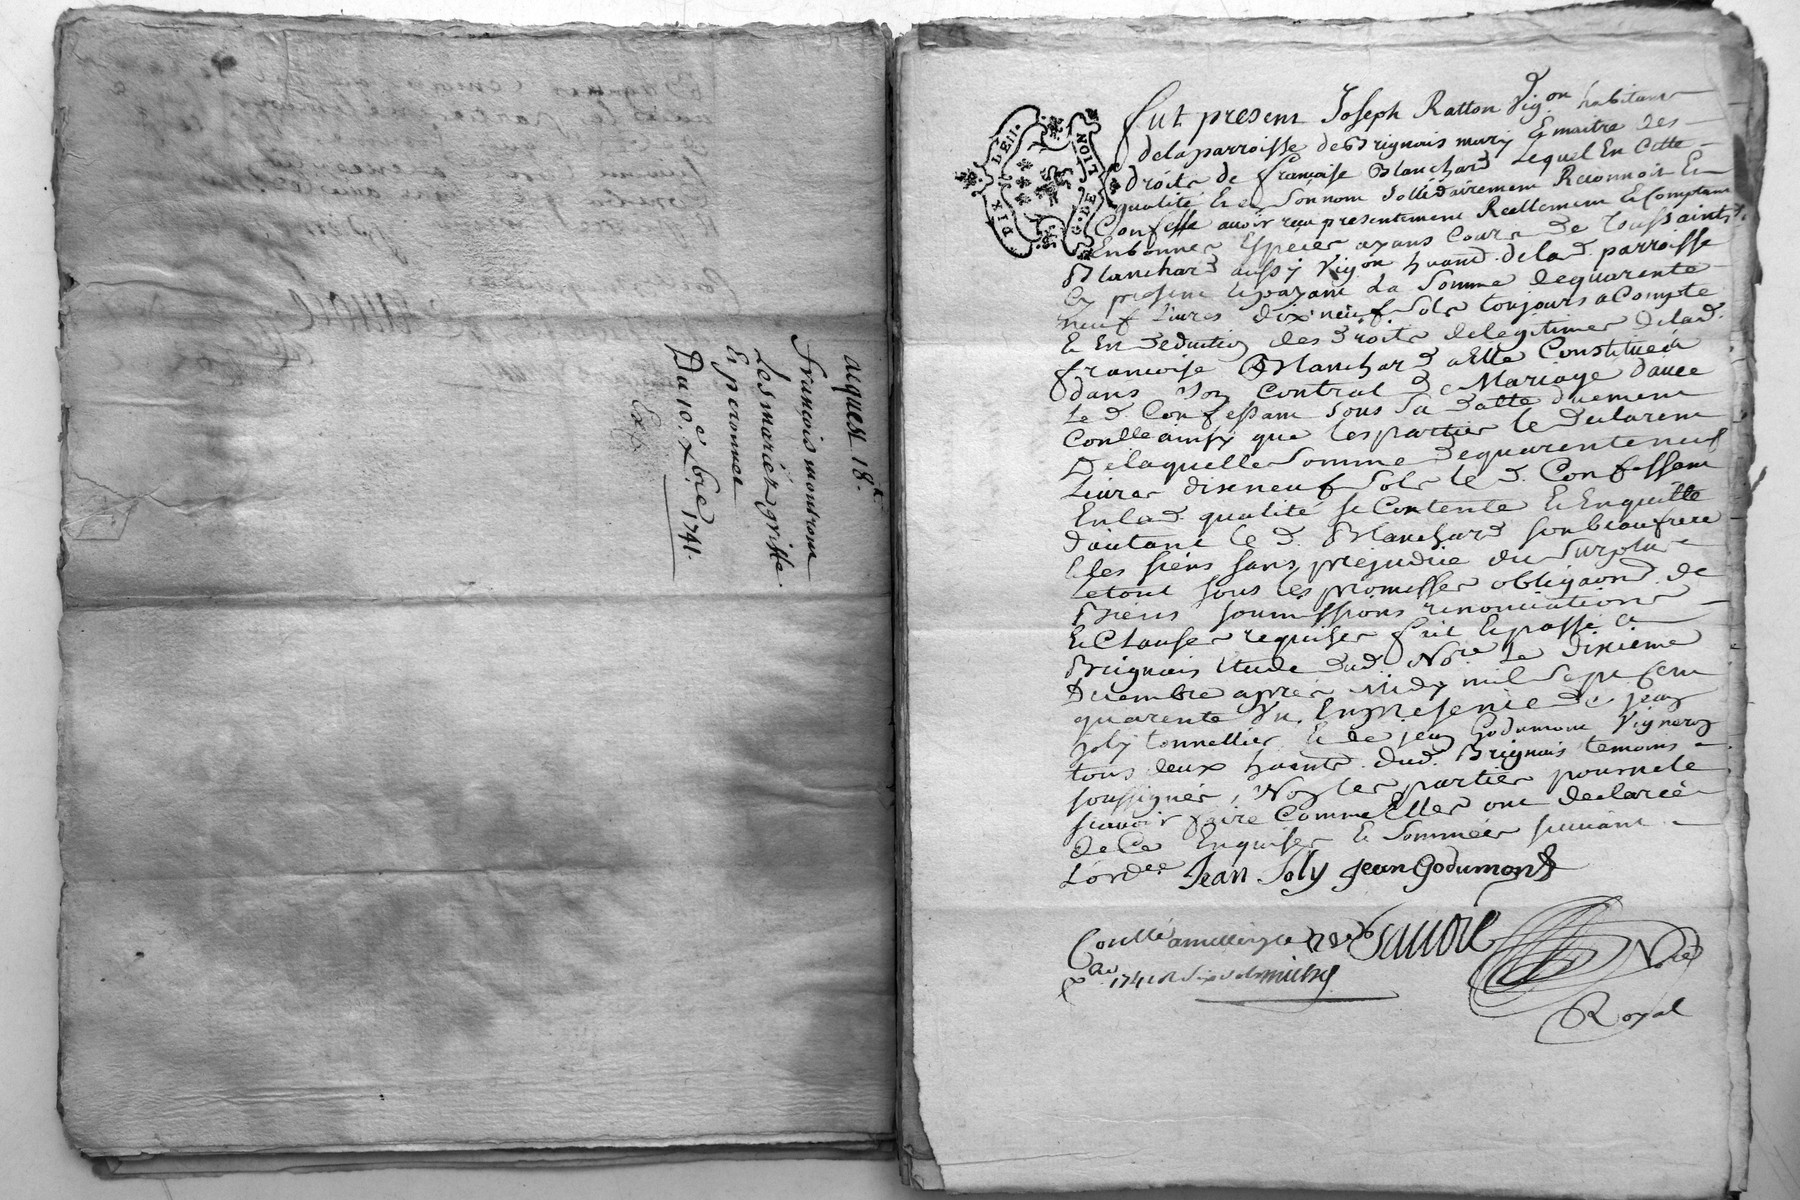 acquest 18.lt
François montrome
Les mariéz griffe.
Eperonnee
Du 10.e xbre 1741.
Exp.
DIX DEN.
G. DE LION
Fut present Joseph Ratton Vig.on habitant
de la parroisse de Brignais mary Et maitre des
droits de françoise Blanchard Lequel En Cette
qualité Et en Son nom Sollidairement Reconnoit Et
Confesse avoir reçu presentement Reellement Et Comptant
En bonnes Especes ayans Cours de Toussaints
Blanchard aussy Vigon hitant. de lad. parroisse
Cy present Et payant La Somme de quarente
neuf Livres dix neuf Sols toujours a Compte
Et En deduction des Droits de legitimes de lad.
françoise Blanchard a Elle Constituéé
dans Son Contrat de Mariage d'avec
Le d. Confessant Sous Sa datte duement
Conllé ainsy que les parties le Declarent
De laquelle Somme de quarente neuf
Livres dix neuf Sols le d. Confessant
En lad. qualité se Contente Et En quitte
d'autant le d. Blanchard son beau frere
Et les siens sans prejudice du Surplus
Le tout sous les promesses obligaons. de
Biens soumissions renonciations
Et Clauses requises fait Et passé a
Brignais Etude dud. No.re Le dixieme
Decembre après Midy mil Sept Cent
quarente Un, En presence de jean
joly tonnellier Et de jean Godumont Vigneron
tous deux hitants. dud. Brignais temoins
soussignés, Non les parties pour ne le
scavoir faire Comme Elles ont declaréé
de Ce Enquises Et Sommées suivant
L'ord.ce Jean Joly Jean Godumont
Conllé a
1741
Royal